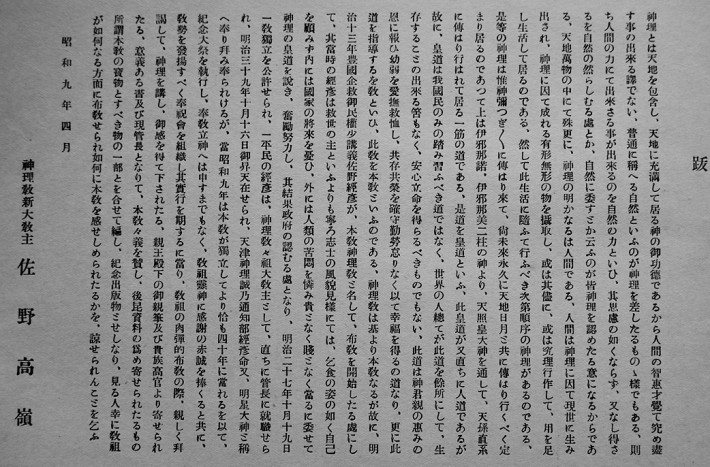 跋
神理とは天地を包含し、天地に充滿して居る神の御功德であるから人間の智惠才覺て究め盡
す事の出來る譯でない、普通に稱へる自然といふのが神理を差したるものゝ樣でもある、則
ち人間の力にて出來さる事が出來るのを自然の力といひ、其思慮の如くならず、又なし得さ
るを自然の然らしむる處とか、自然に委すとか云ふのが皆神理を認めたる意になるからであ
る、天地萬物の中にて殊更に、神理の明かなるは人間である、人間は神理に因て現世に生み
出され、神理に因て成れる有形無形の物を攝取し、或は其儘に、或は究理行作して、用を足
し生活して居るのである、然して此生活に隨ふて行ふべき次第順序の神理があるのである、
是等の神理は惟神彌つぎ〳〵に傳はり來て、尙未來永久に天地日月と共に傳はり行くべく定
まり居るのであつて上は伊邪那諾、伊邪那美二柱の神より、天照皇大神を通して、天孫直系
に傳はり行はれて居る一筋の道である、是道を皇道といふ、此皇道が又直ちに人道であるが
故に、皇道は我國民のみの踏み習ふべき道ではなく、世界の人總てが此道を餘所にして、生
存することの出來る筈もなく、安心立命を得らるべきものでもない、此道は神君親の惠みの
恩に報ひ幼弱を愛撫救恤し、共存共榮を確守勤勞怠りなく以て幸福を得るの道なり、更に此
道を指導するを敎といひ、此敎を本敎といふのである、神理敎は基より本敎なるが故に、明
治十三年豐國企救御民櫞少講義佐野經彥が、本敎神理敎と名して、布敎を開始したる處にし
て、其當時の經彥は救世の主といふよりも寧ろ志士の風貌見樣にては、乞食の姿の如く自己
を顧みず内には國家の將來を憂ひ、外には人類の苦悶を憐み貴となく賤となく當るに委せて
神理の皇道を說き、奮勵努力し、其結果政府の認むる處となり、明治二十七年十月十九日
一敎獨立を公許せられ、一平民の經彥は、神理敎々祖大敎主として、直ちに管長に就職せら
れ、明治三十九年十月十六日御昇天在せられ、天津神理誠乃通知部經彥命又、明星大神と稱
へ奉り拜み奉られけるが、當昭和九年は本敎が獨立してより恰も四十年に當れるを以て、
紀念大祭を執行し、奉敎立神へは申すまでもなく、敎祖靈神に感謝の赤誠を捧くると共に、
敎勢を發揚すべく奉祝會を組織し其實行を期するに當り、敎祖の肉彈的布敎の際、親しく拜
謁して、神理を講し、御感を得て下されたる、親王殿下の御親筆及貴族高官より寄せられ
たる、意義ある書及び現管長となりて、本敎々義を賛し、後昆資料の爲め寄せられたるもの
所謂本敎の寶物とすべき物の一部とを合せて編し、紀念出版物とせしなり、見る人幸に敎祖
が如何なる方面に布敎せられ如何に本敎を感せしめられたるかを、諒せられんことを乞ふ
昭和九年四月
神理敎新大敎主　佐野高嶺